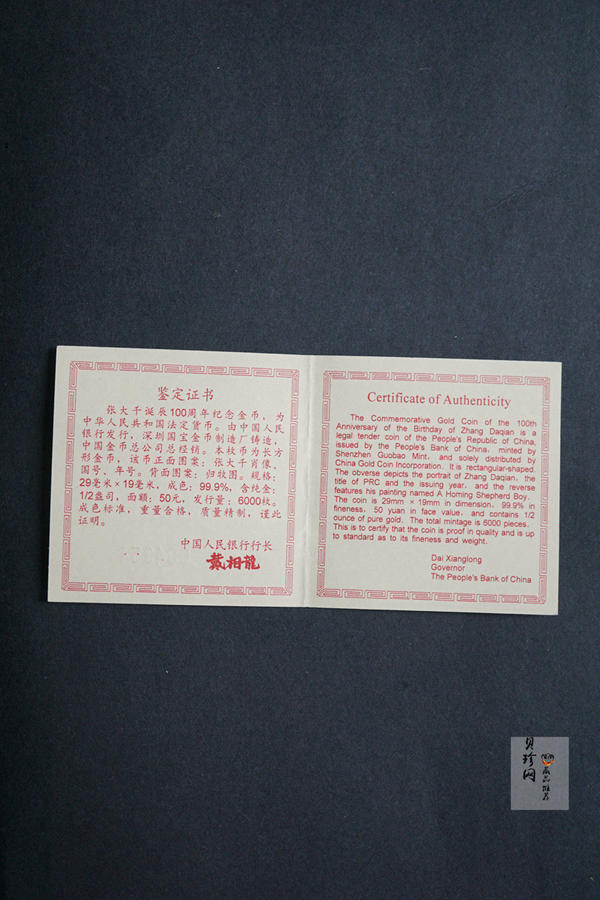 鉴定证书
张大千诞辰100周年纪念金币，为
中华人民共和国法定货币。由中国人民
银行发行，深圳国宝金币制造厂铸造，
中国金币总公司总经销。本枚币为长方
形金币，该币正面图案：张大千肖像、
国号、年号。背面图案：归牧图。规格：
29毫米×19毫米，成色：99.9%，含纯金：
1/2盎司，面额：50元，发行量：6000枚。
成色标准，重量合格，质量精制，谨此
证明。
中国人民银行行长
戴相龍
Certificate of Authenticity
The Commemorative Gold Coin of the 100th
Anniversary of the Birthday of Zhang Daqian is a
legal tender coin of the People's Republic of China,
issued by the People's Bank of China, minted by
Shenzhen Guobao Mint, and solely distributed by
China Gold Coin Incorporation. It is rectangular-shaped.
The obverse depicts the portrait of Zhang Daqian, the
title of PRC and the issuing year, and the reverse
features his painting named A Homing Shepherd Boy.
The coin is 29mm × 19mm in dimension, 99.9% in
fineness, 50 yuan in face value, and contains 1/2
ounce of pure gold. The total mintage is 6000 pieces.
This is to certify that the coin is proof in quality and is up
to standard as to its fineness and weight.
Dai Xianglong
Governor
The People's Bank of China
贝珍网
藏品推荐